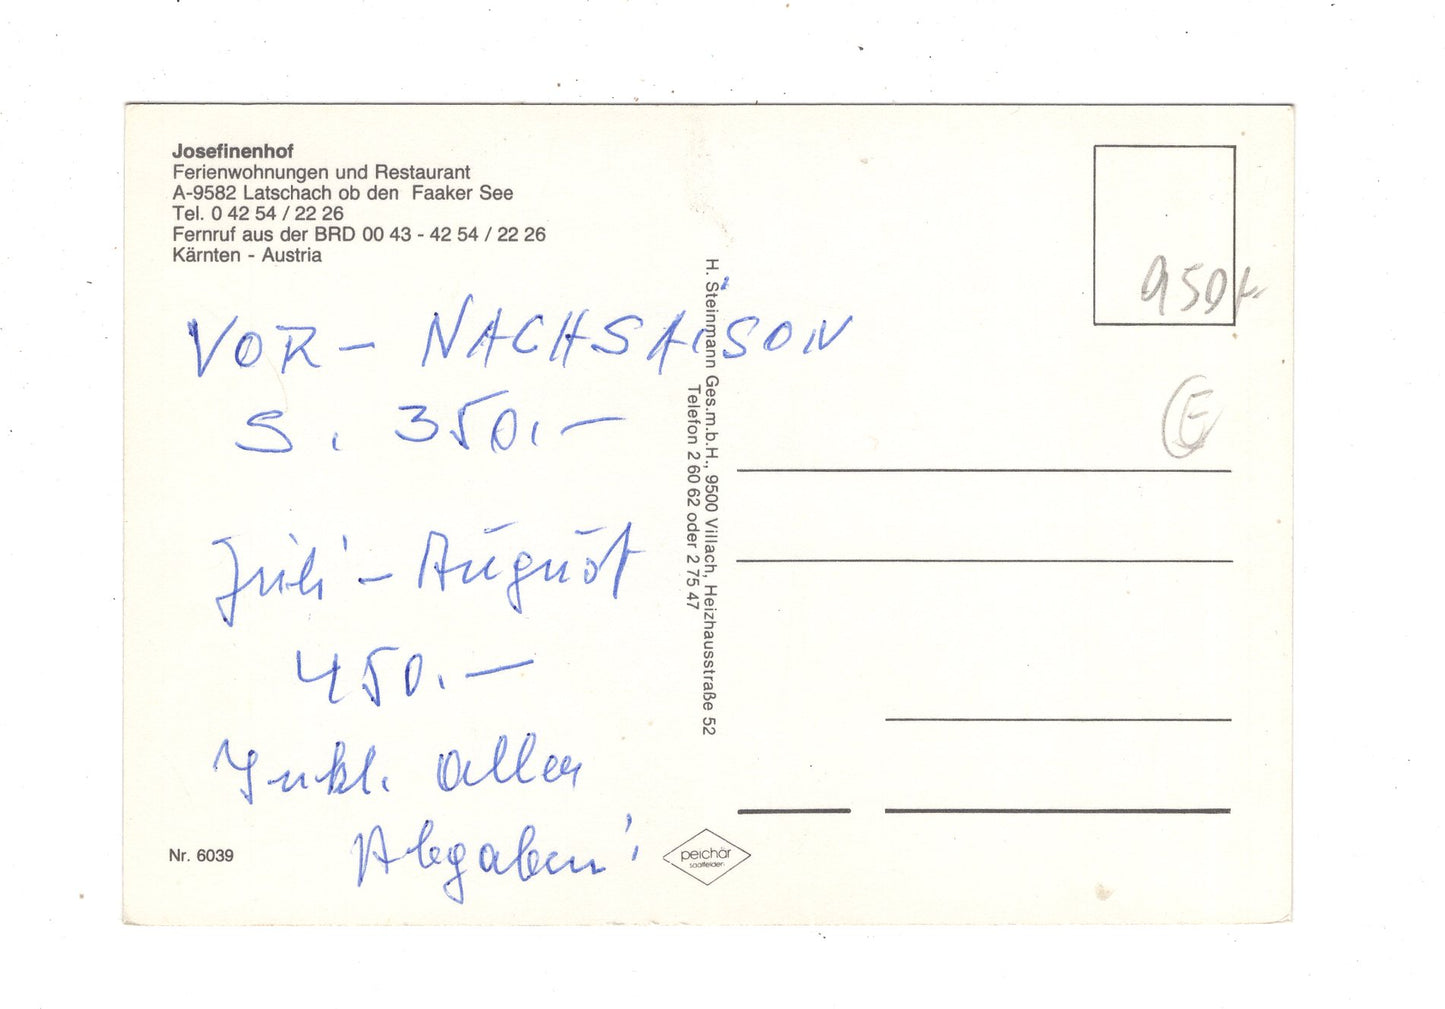 Josefinenhof
Ferienwohnungen und Restaurant
A-9582 Latschach ob den Faaker See
Tel. 0 42 54 / 22 26
Fernruf aus der BRD 00 43 - 42 54 / 22 26
Kärnten - Austria
VOR - NACHSAISON
S. 350.-
Juli - August
450.-
Inkl. aller
Abgaben!
Nr. 6039
H. Steinmann Ges.m.b.H., 9500 Villach, Heizhausstraße 52
Telefon 2 60 62 oder 2 75 47
peichär
saalfelden
950
E